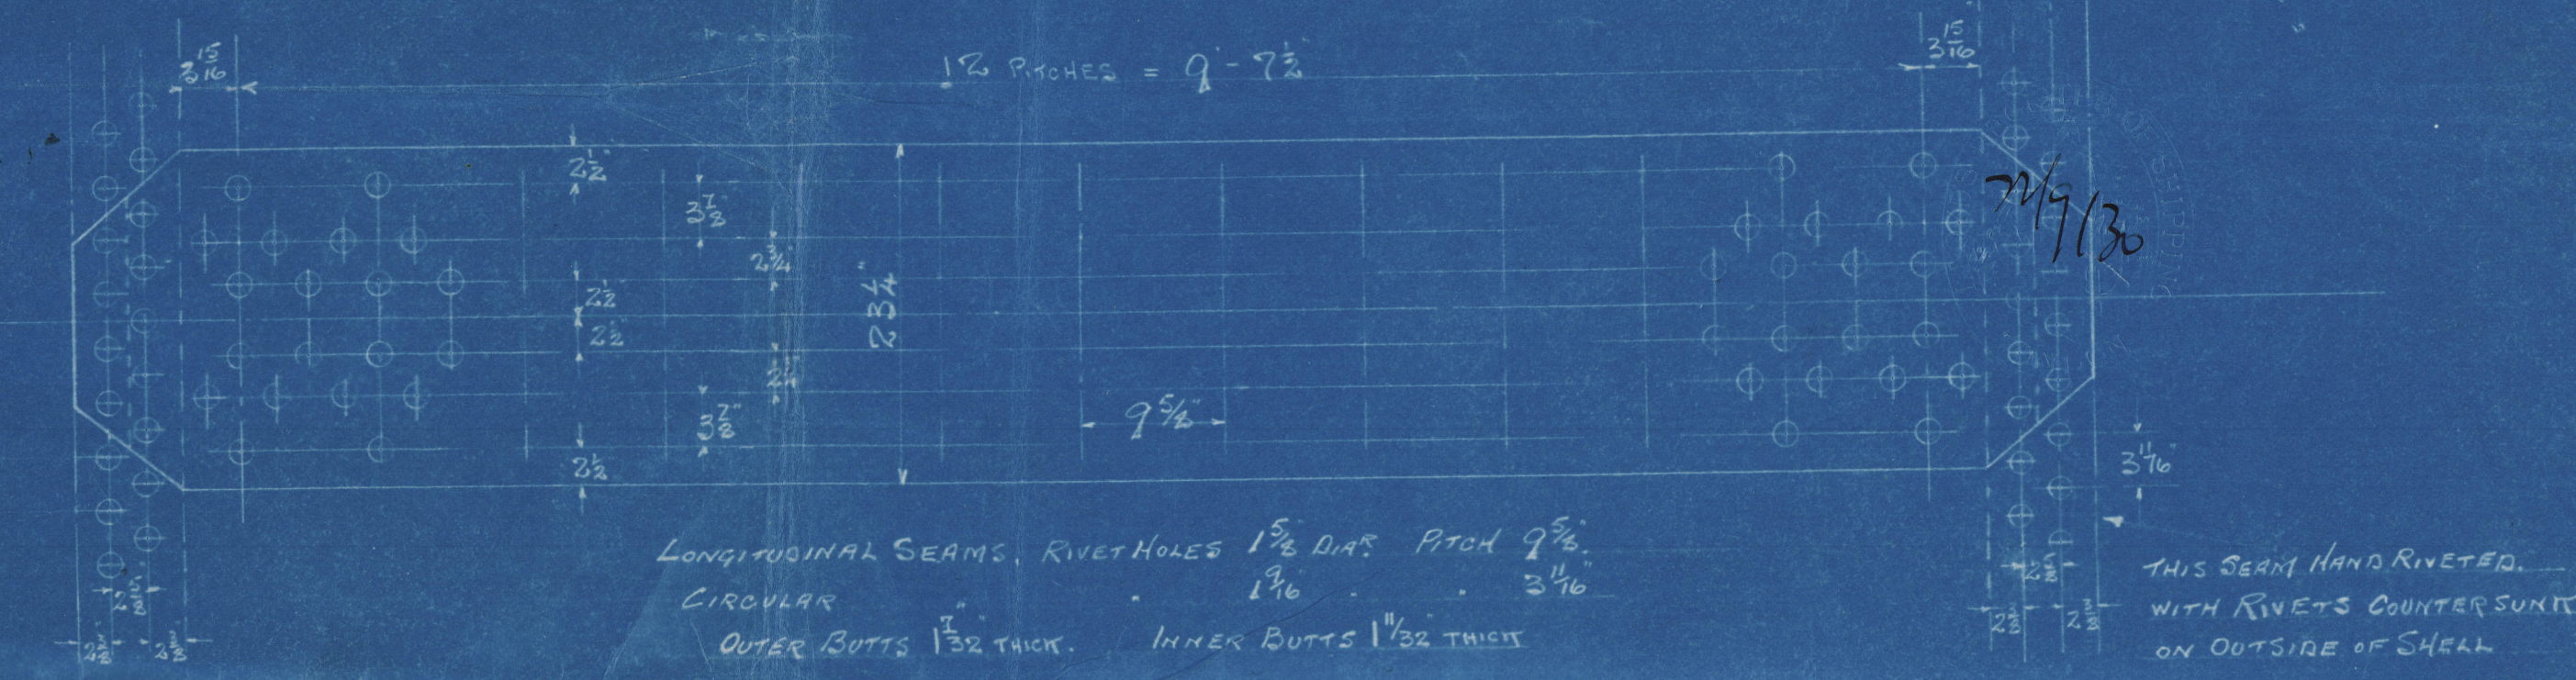 3 15/16"
12 PITCHES = 9' - 7 1/2"
3 15/16"
2 1/2"
3 7/8"
2 3/4"
2 1/2"
2 1/2"
23 1/4"
3 7/8"
9 5/8"
2 1/2
3 11/16"
LONGITUDINAL SEAMS, RIVET HOLES 1 5/8" DIAR. PITCH 9 5/8".
CIRCULAR " 1 9/16" " " 3 11/16"
OUTER BUTTS 1 7/32" THICK. INNER BUTTS 1 11/32" THICK
2 5/8"
2 3/8" 2 3/8"
2 5/8"
2 3/8" 2 3/8"
THIS SEAM HAND RIVETED.
WITH RIVETS COUNTERSUNK
ON OUTSIDE OF SHELL
OF SHIPPING